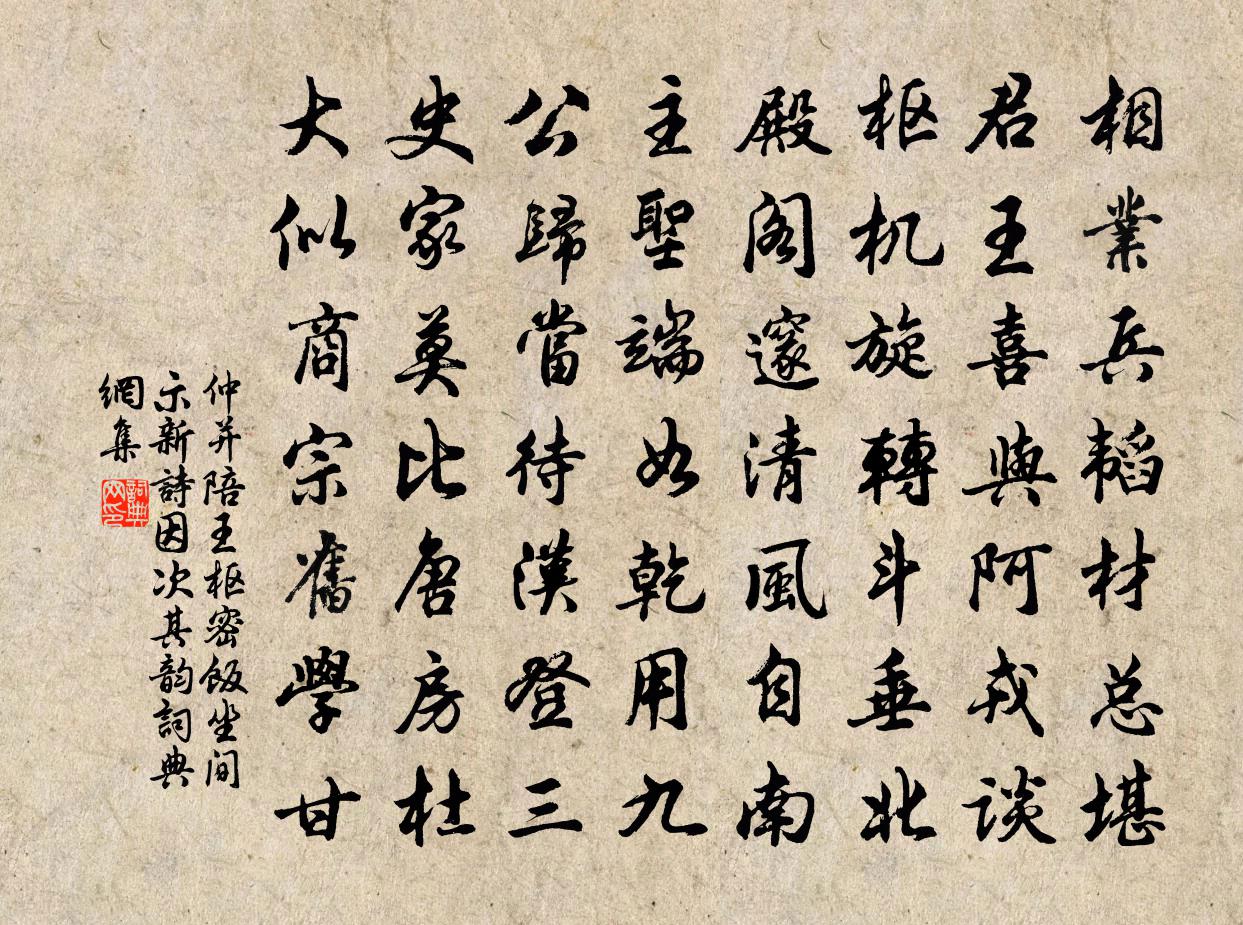 相業兵韬材总堪
君王喜與阿戎談
枢机旋轉斗垂北
殿阁邃清風自南
主聖端如乾用九
公歸當待漢登三
史家莫比唐房杜
大似商宗舊學甘
仲并陪王枢密飯坐间
示新詩因次其韵詞典
網集
詞典网印